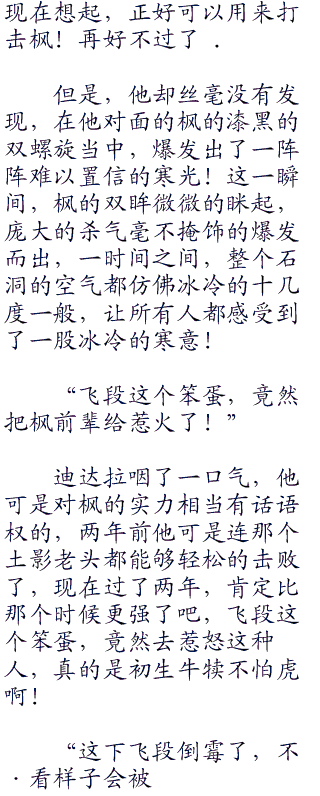 现在想起，正好可以用来打
击枫！再好不过了 ．
但是，他却丝毫没有发
现，在他对面的枫的漆黑的
双螺旋当中，爆发出了一阵
阵难以置信的寒光！这一瞬
间，枫的双眸微微的眯起，
庞大的杀气毫不掩饰的爆发
而出，一时间之间，整个石
洞的空气都仿佛冰冷的十几
度一般，让所有人都感受到
了一股冰冷的寒意！
“飞段这个笨蛋，竟然
把枫前辈给惹火了！”
迪达拉咽了一口气，他
可是对枫的实力相当有话语
权的，两年前他可是连那个
土影老头都能够轻松的击败
了，现在过了两年，肯定比
那个时候更强了吧，飞段这
个笨蛋，竟然去惹怒这种
人，真的是初生牛犊不怕虎
啊！
“这下飞段倒霉了，不
·看样子会被